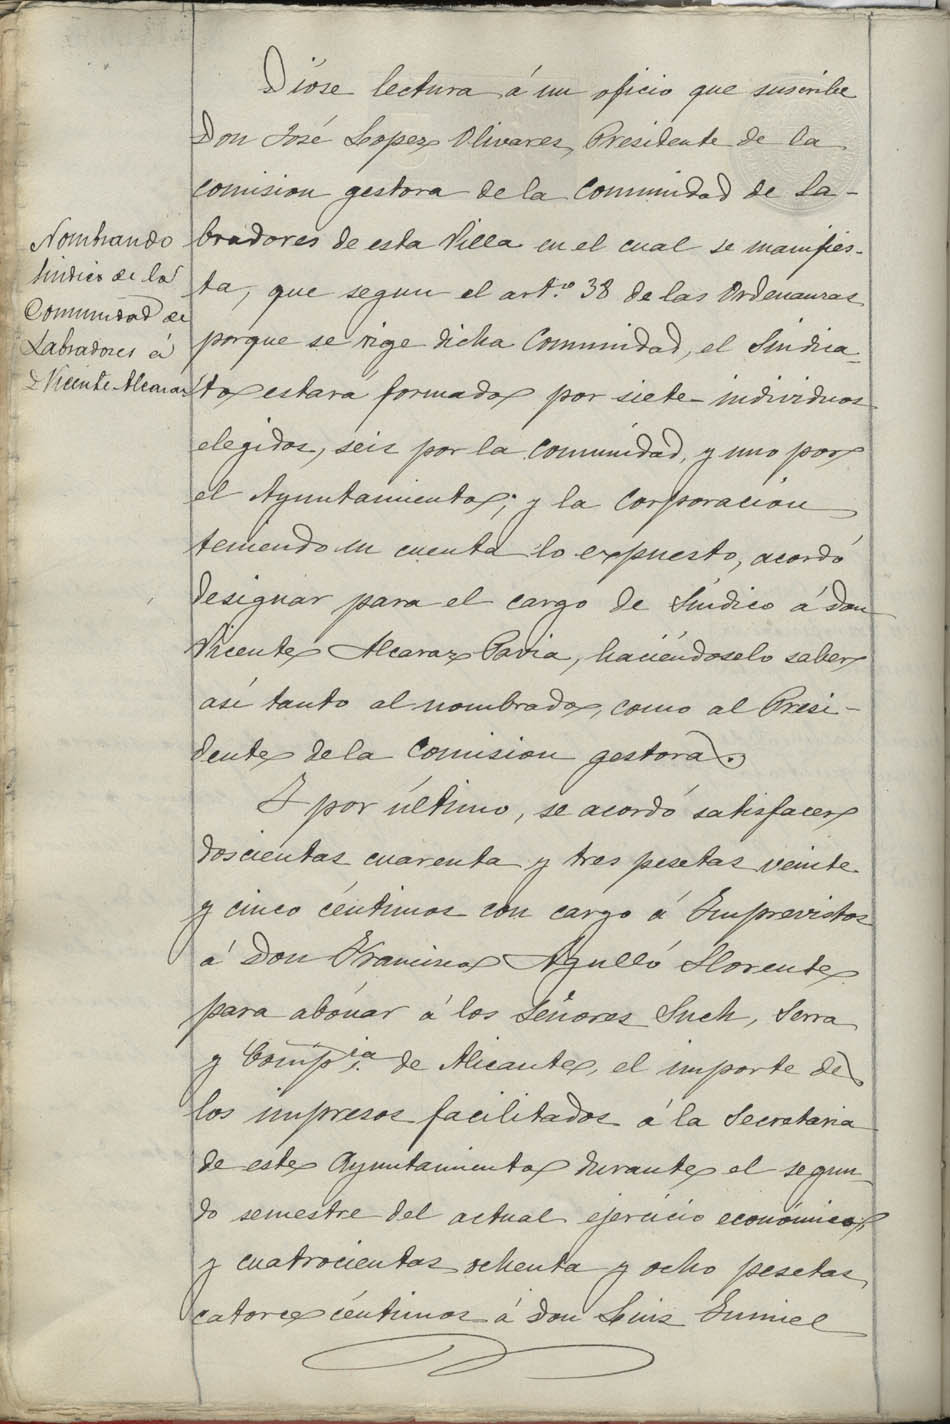 Dióse lectura á un oficio que suscribe
Don José Lopez Olivares, Presidente de la
comision gestora de la Comunidad de La-
bradores de esta Villa en el cual se manifies-
ta, que segun el artº 38 de las Ordenanzas
porque se rige dicha Comunidad, el Sindica-
to estará formado por siete individuos
elegidos, seis por la Comunidad, y uno por
el Ayuntamiento; y la Corporacion
teniendo en cuenta lo expuesto, acordó
designar para el cargo de Síndico á Don
Vicente Alcaraz Pavia, haciéndoselo saber
así tanto al nombrado, como al Presi-
dente de la Comision gestora.
Nombrando
Sindico de la
Comunidad de
Labradores á
D Vicente Alcaraz
Y por último, se acordó satisfacer
doscientas cuarenta y tres pesetas veinte
y cinco céntimos con cargo á Imprevistos
á Don Francisco Agulló Llorente
para abonar á los Señores Such, Serra
y Compia. de Alicante, el importe de
los impresos facilitados á la Secretaria
de este Ayuntamiento durante el segun-
do semestre del actual ejercicio económico,
y cuatrocientas ochenta y ocho pesetas
catorce céntimos á Don Luis